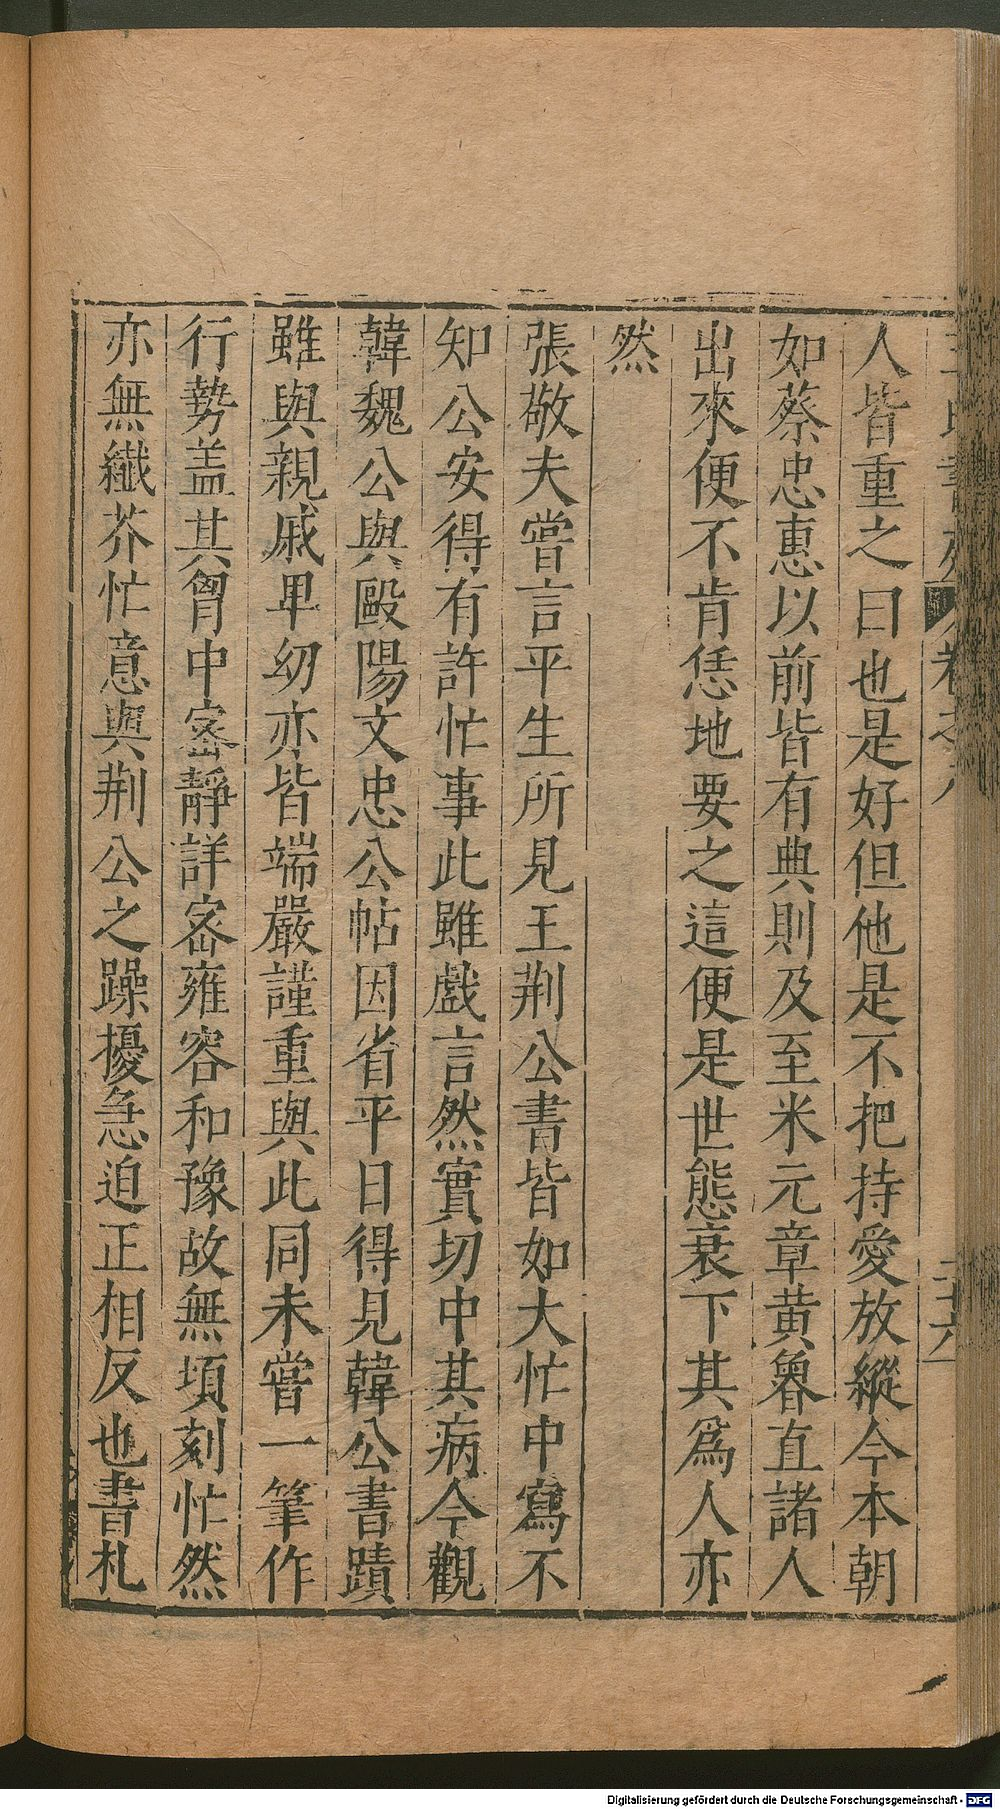 人皆重之曰也是好但他是不把持愛放縱今本朝
如蔡忠惠以前皆有典則及至米元章黄魯直諸人
出來便不肯恁地要之這便是世態衰下其爲人亦
然
張敬夫嘗言平生所見王荆公書皆如大忙中寫不
知公安得有許忙事此雖戲言然實切中其病今觀
韓魏公與歐陽文忠公帖因省平日得見韓公書蹟
雖與親戚卑幼亦皆端嚴謹重與此同未嘗一筆作
行勢盖其胷中宻靜詳宻雍容和豫故無頃刻忙然
亦無纎芥忙意與荆公之躁擾急迫正相反也書札
Digitalisierung gefördert durch die Deutsche Forschungsgemeinschaft - DFG